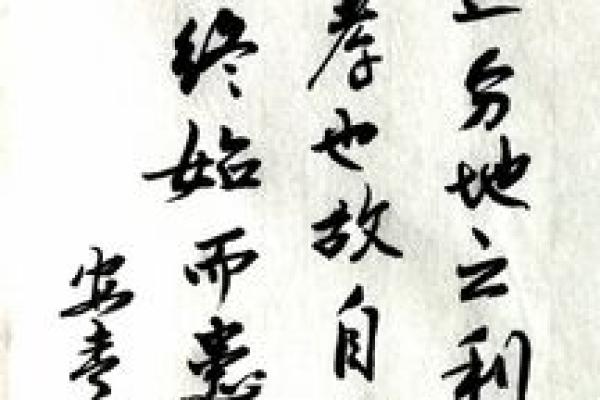 分地之利
孝也故自
终始而患
安